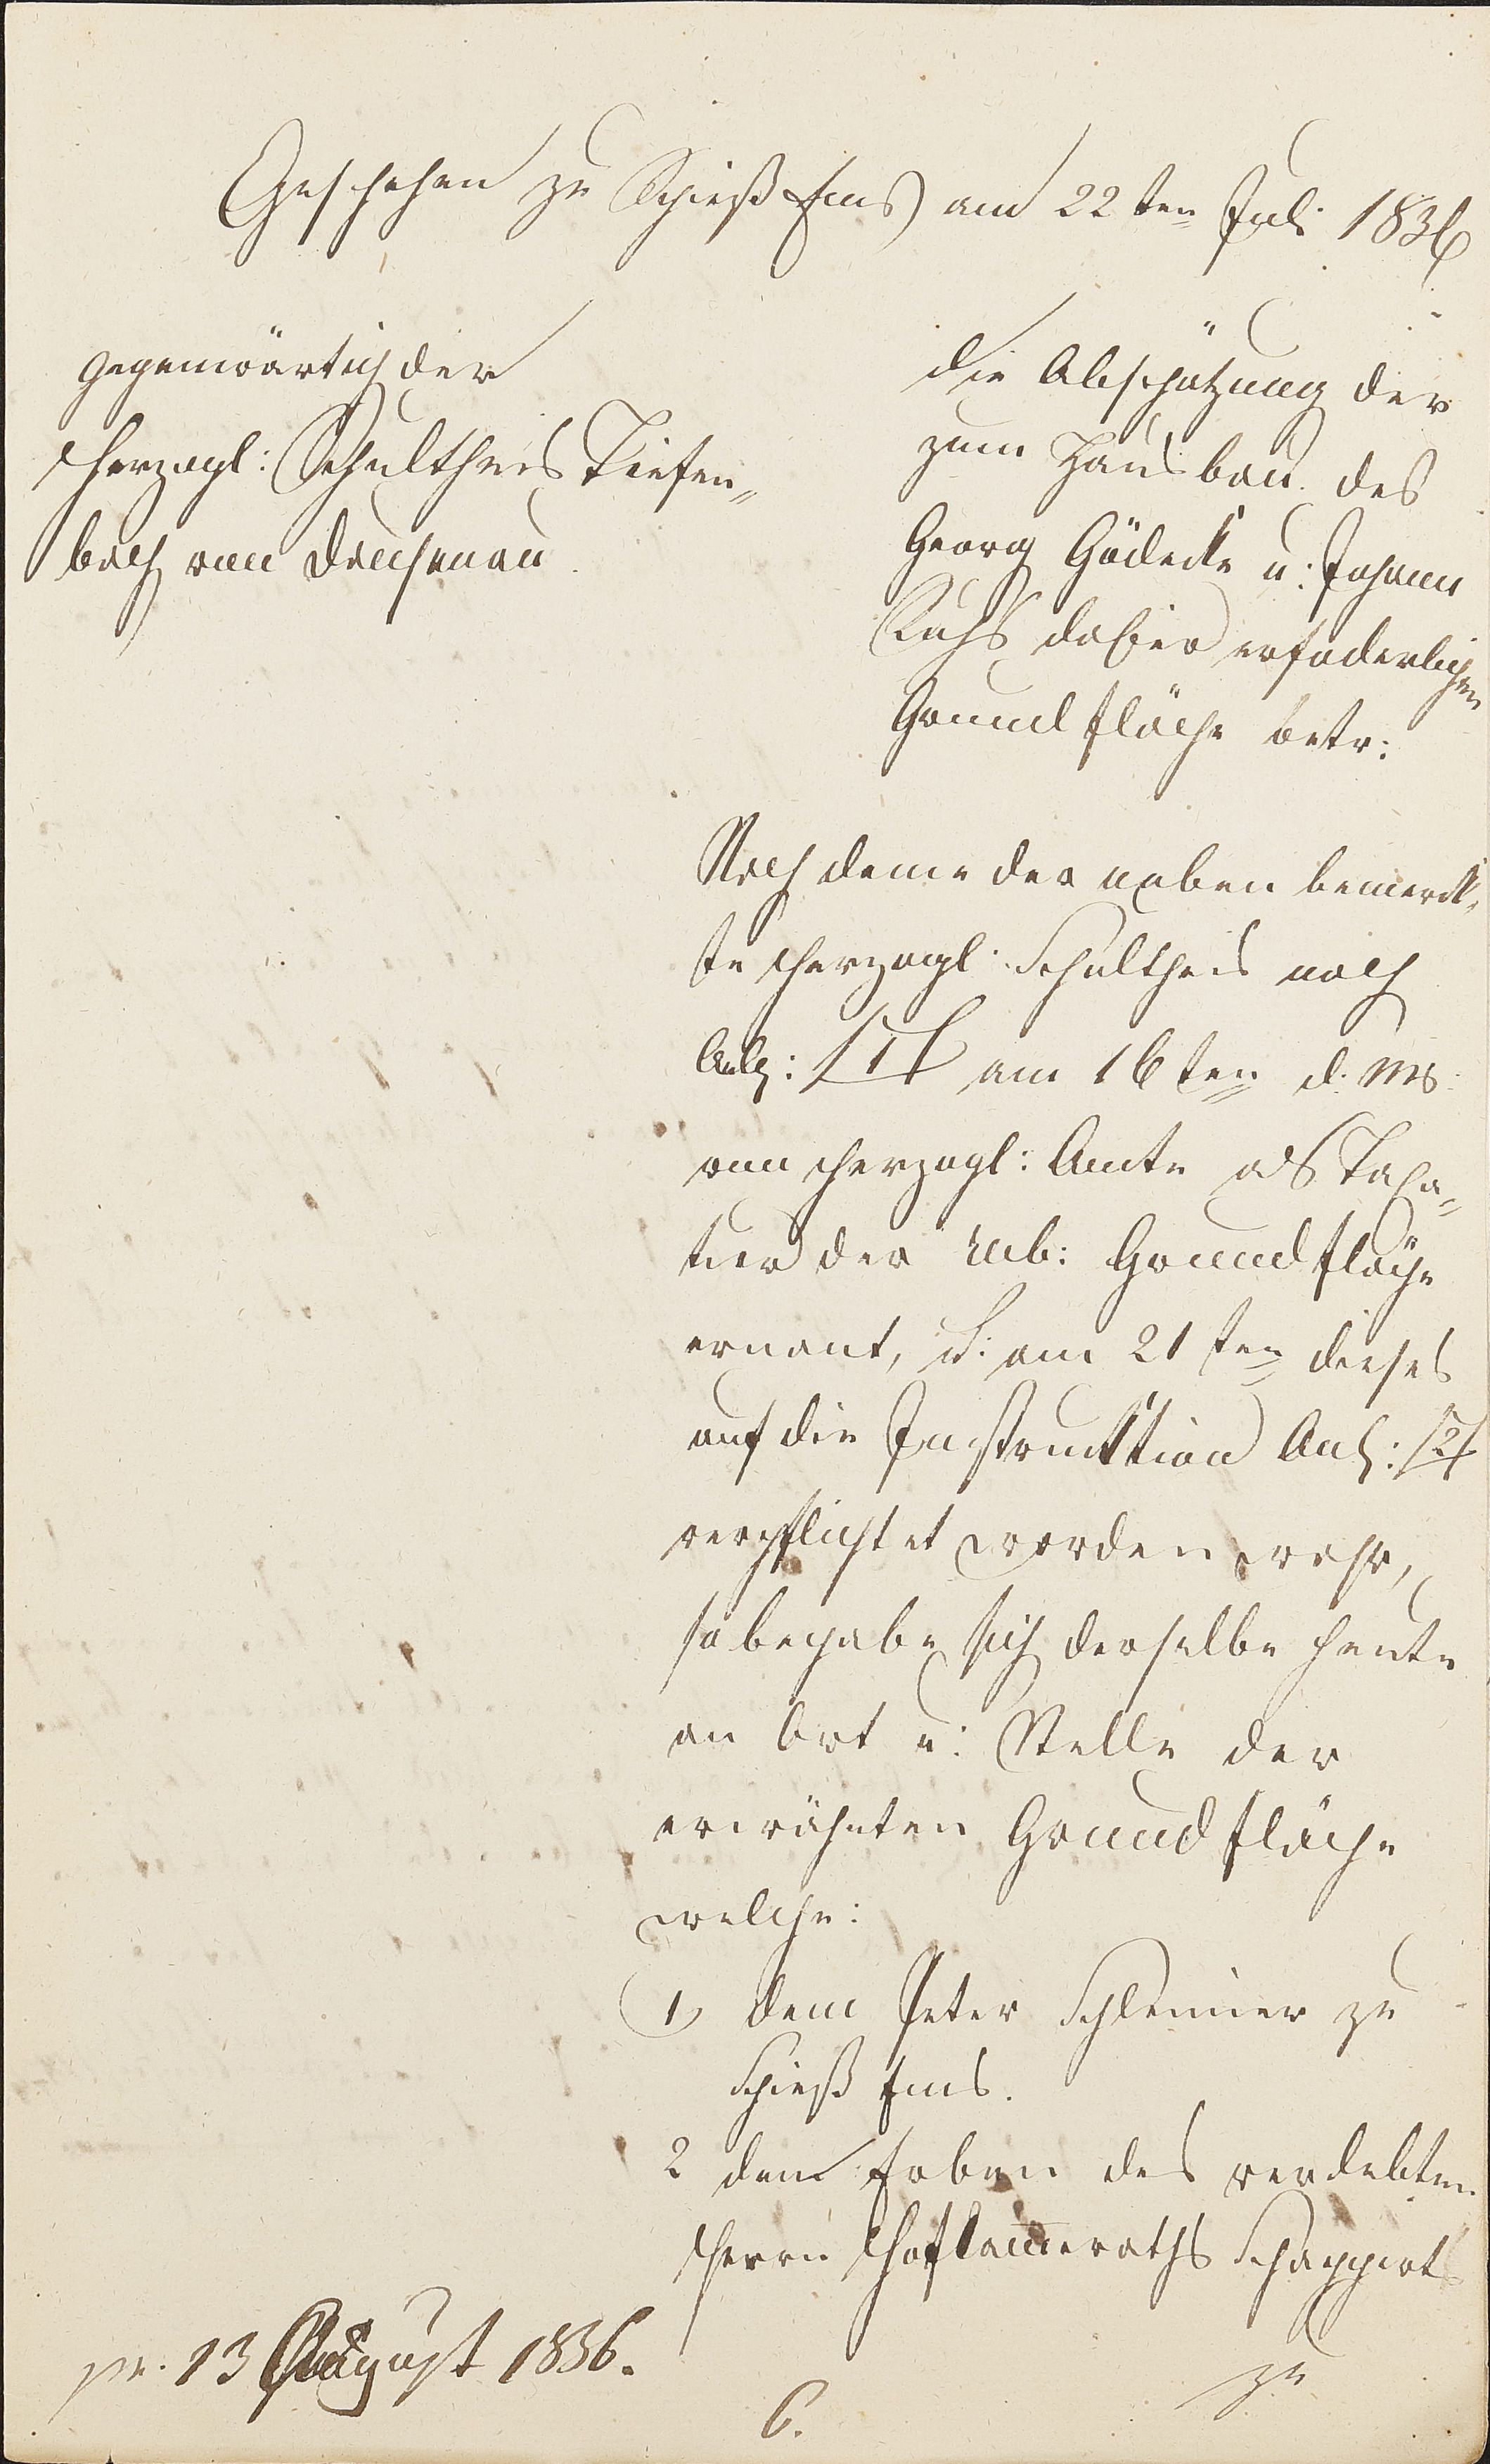 Geschehen zu Spieß Ems am 22ten Juli 1836
gegenwärtich der
Herzogl: Schultheis Tiefen„
bach von Dausenau.
die Abschätzung der
zum Hausbau des
Georg Gödecke u: Johann
dahier erfoderlichen
Grundfläche betr:
Nach deme der neben bemerck„
te Herzogl: Schultheis nach
Anlg: /1/ am 16ten d. Ms.
von Herzogl: Amte als Taxa„
tier der Grundfläche
ernant, u: am 21ten dieses
auf die Instrucktion Anl: /2/
verpflichtet worden wahr,
so begabe sich derselbe heute
an Ort u: Stelle der
erwähnten Grundfläche
welche:
1, dem Peter zu
Spieß Ems.
2 den Erben des verlebten
Herrn Hofkameraths
zu
pr. 13 August 1836.
6.